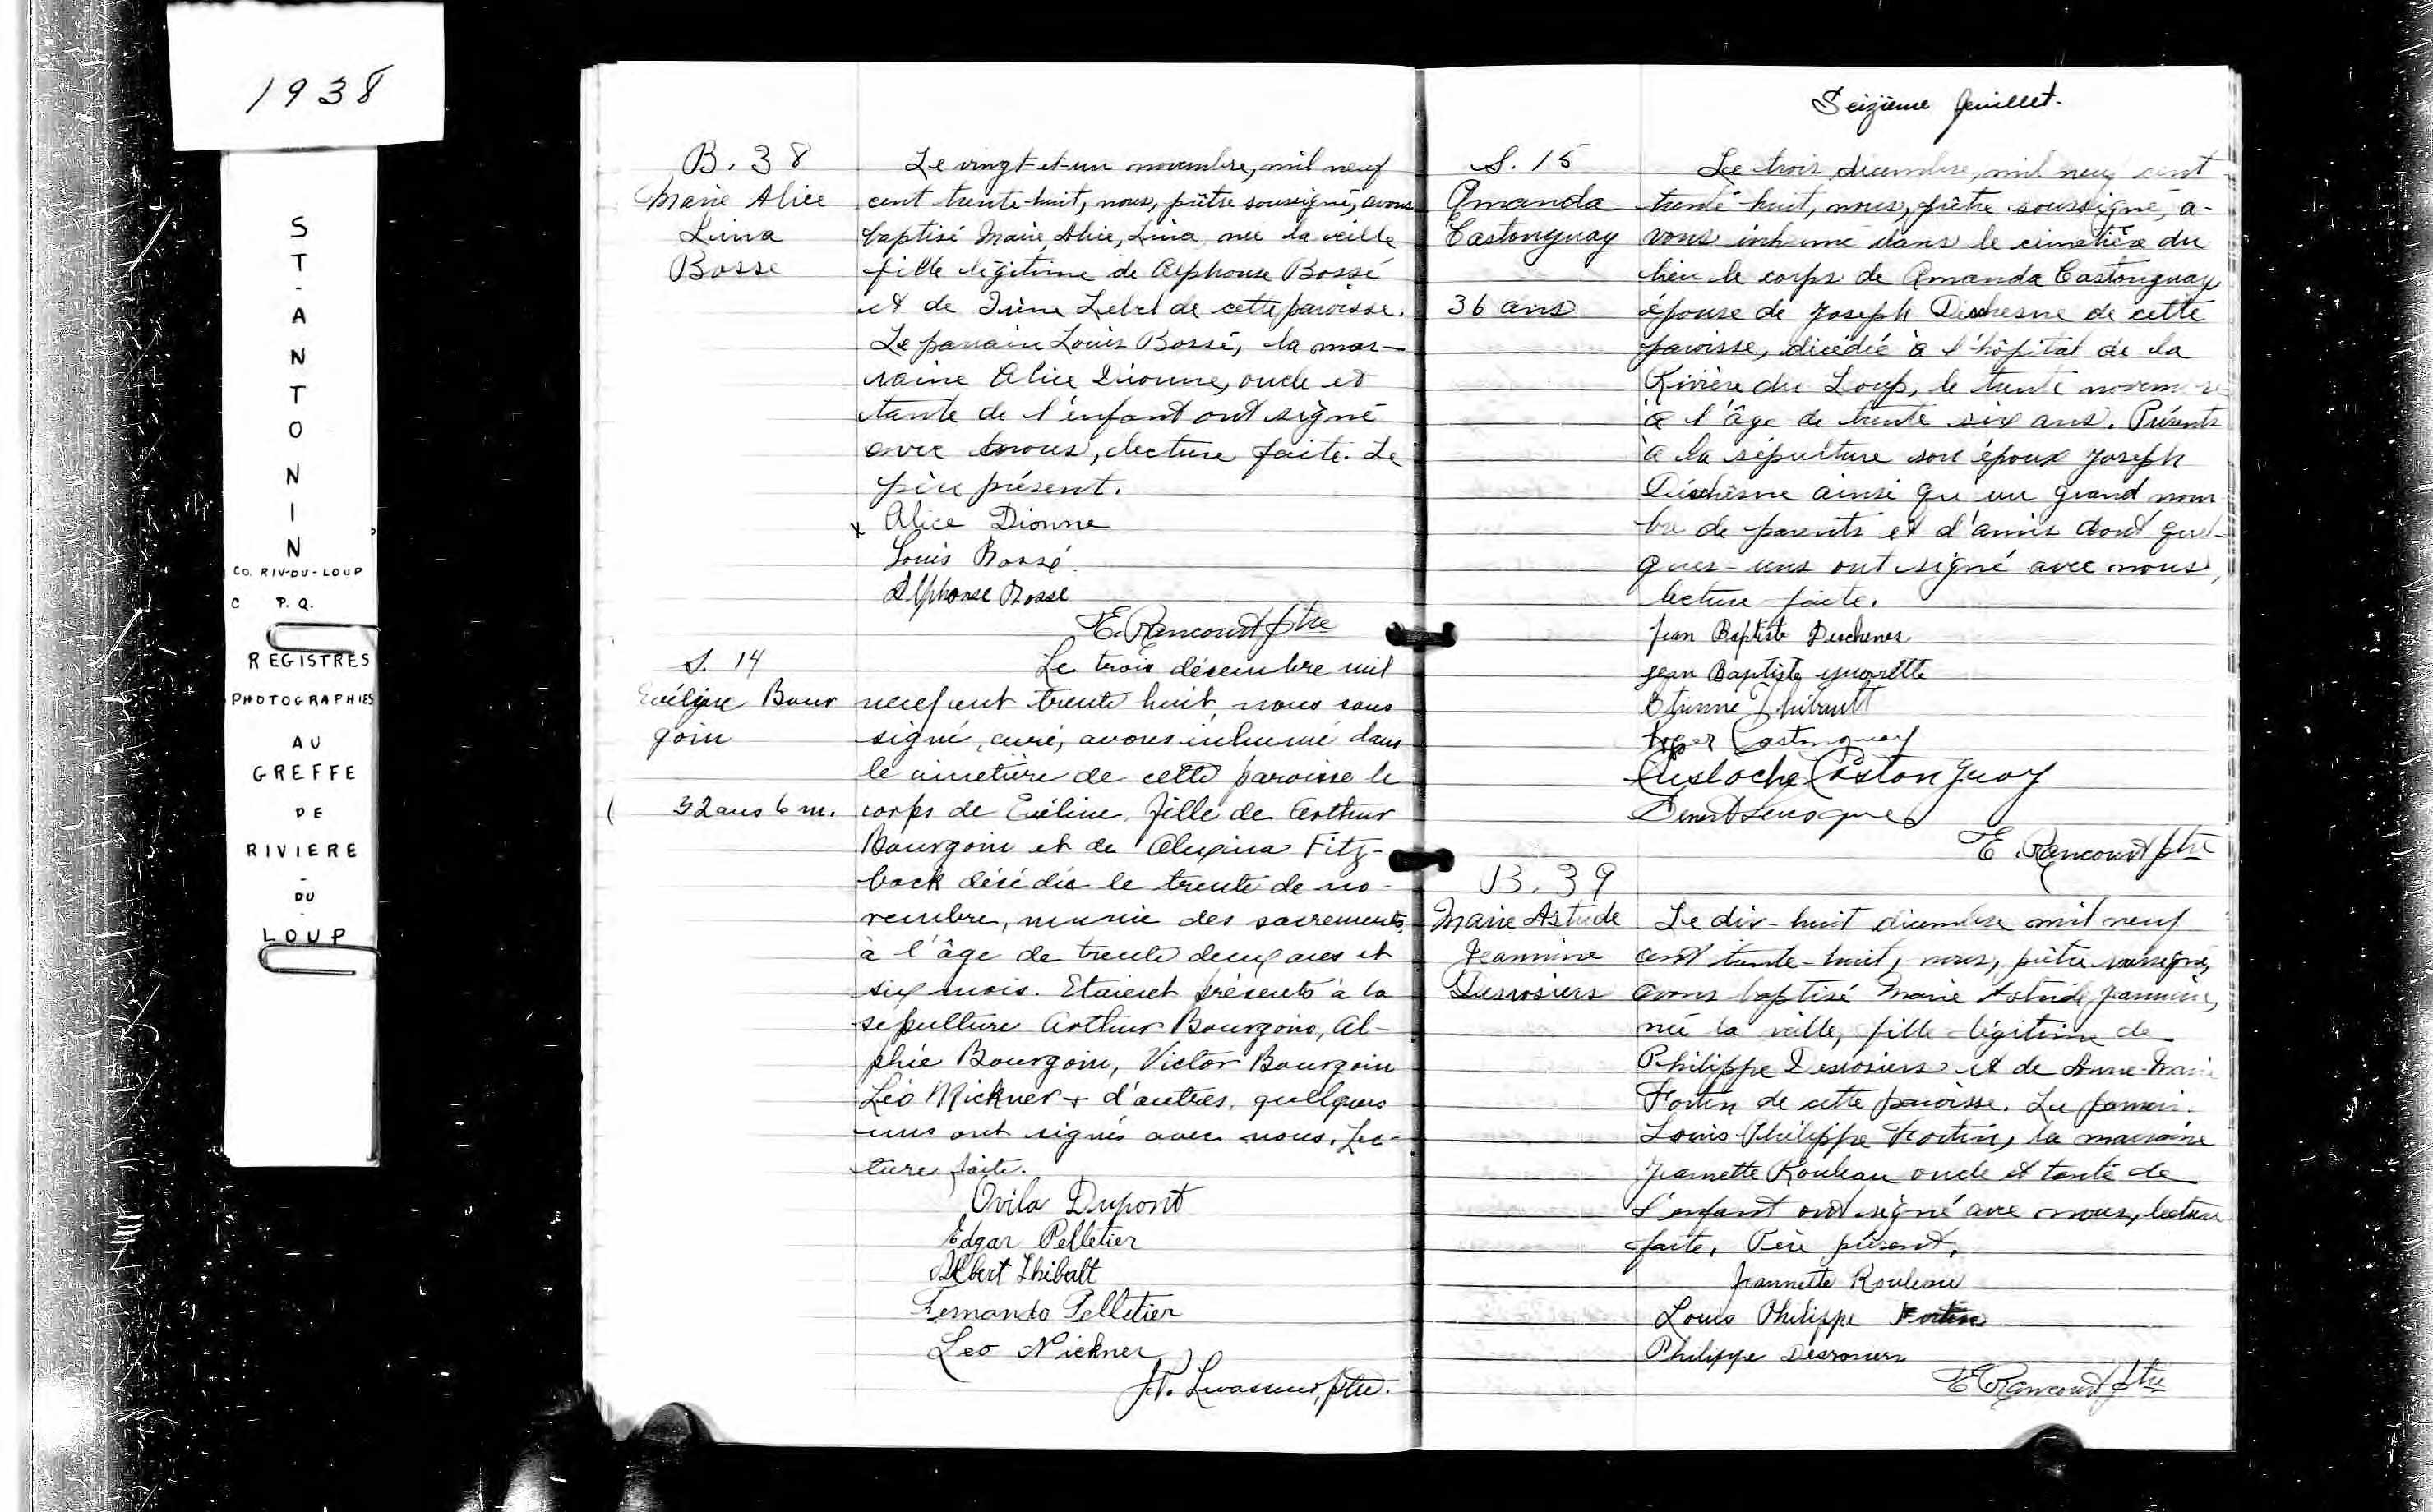 1938
ST-ANTONIN
CO. RIV-DU-LOUP
C P.Q.
REGISTRES
PHOTOGRAPHIES
AU
GREFFE
DE
RIVIERE
-
DU
LOUP
B. 38
Marie Alice
Lina
Bosse
Le vingt-et-un novembre, mil neuf
cent trente-huit, nous, prêtre soussigné, avons
baptisé Marie, Alice, Lina, née la veille
fille légitime de Alphonse Bossé
et de Irène Lebel de cette paroisse.
Le parrain Louis Bossé, la mar-
raine Alice Dionne, oncle et
tante de l'enfant ont signé
avec nous, lecture faite. Le
père présent.
x Alice Dionne
Louis Bossé.
Alphonse Bosse
E. Rancourt ptre
S. 14
Evéline Bour
goin
32 ans 6 m.
Le trois décembre mil
neuf cent trente huit, nous sous
signé, curé, avons inhumé dans
le cimetière de cette paroisse le
corps de Evéline, fille de Arthur
Bourgoin et de Alexina Fitz-
back décédée le trente de no-
vembre, munie des sacrements,
à l'âge de trente deux ans et
six mois. Etaient présents à la
sépulture Arthur Bourgoin, Al-
phée Bourgoin, Victor Bourgoin
Léo Nickner + d'autres, quelques
uns ont signés avec nous. Lec-
ture faite.
Ovila Dupont
Edgar Pelletier
Albert Thibalt
Fernando Pelletier
Leo Nickner
Levasseur, ptre.
Seizième feuillet.
S. 15
Amanda
Castonguay
36 ans
Le trois décembre, mil neuf cent
trente-huit, nous, prêtre soussigné, a-
vons inhumé dans le cimetière du
lieu le corps de Amanda Castonguay
épouse de Joseph Deschesne de cette
paroisse, décédée à l'hôpital de la
Rivière du Loup, le trente novembre
à l'âge de trente six ans. Présents
à la sépulture son époux Joseph
Deschêsne ainsi qu'un grand nom
bre de parents et d'amis dont quel-
ques-uns ont signé avec nous,
lecture faite.
Jean Baptiste Deschenes
Jean Baptiste
Etienne Thibault
Roger Castonguay
Eustache Castonguay
E. Rancourt ptre
B. 39
Marie Astride
Jeannine
Desrosiers
Le dix-huit décembre mil neuf
cent trente-huit, nous, prêtre soussigné,
avons baptisé Marie Astride Jeannine,
née la veille, fille légitime de
Philippe Desrosiers et de Anne-Marie
Fortin de cette paroisse. Le parrain
Louis-Philippe Fortin, la marraine
Jeannette Rouleau oncle et tante de
l'enfant ont signé avec nous, lecture
faite. Père présent.
Jeannette Rouleau
Louis Philippe Fortin
Philippe Desrosiers
E. Rancourt ptre